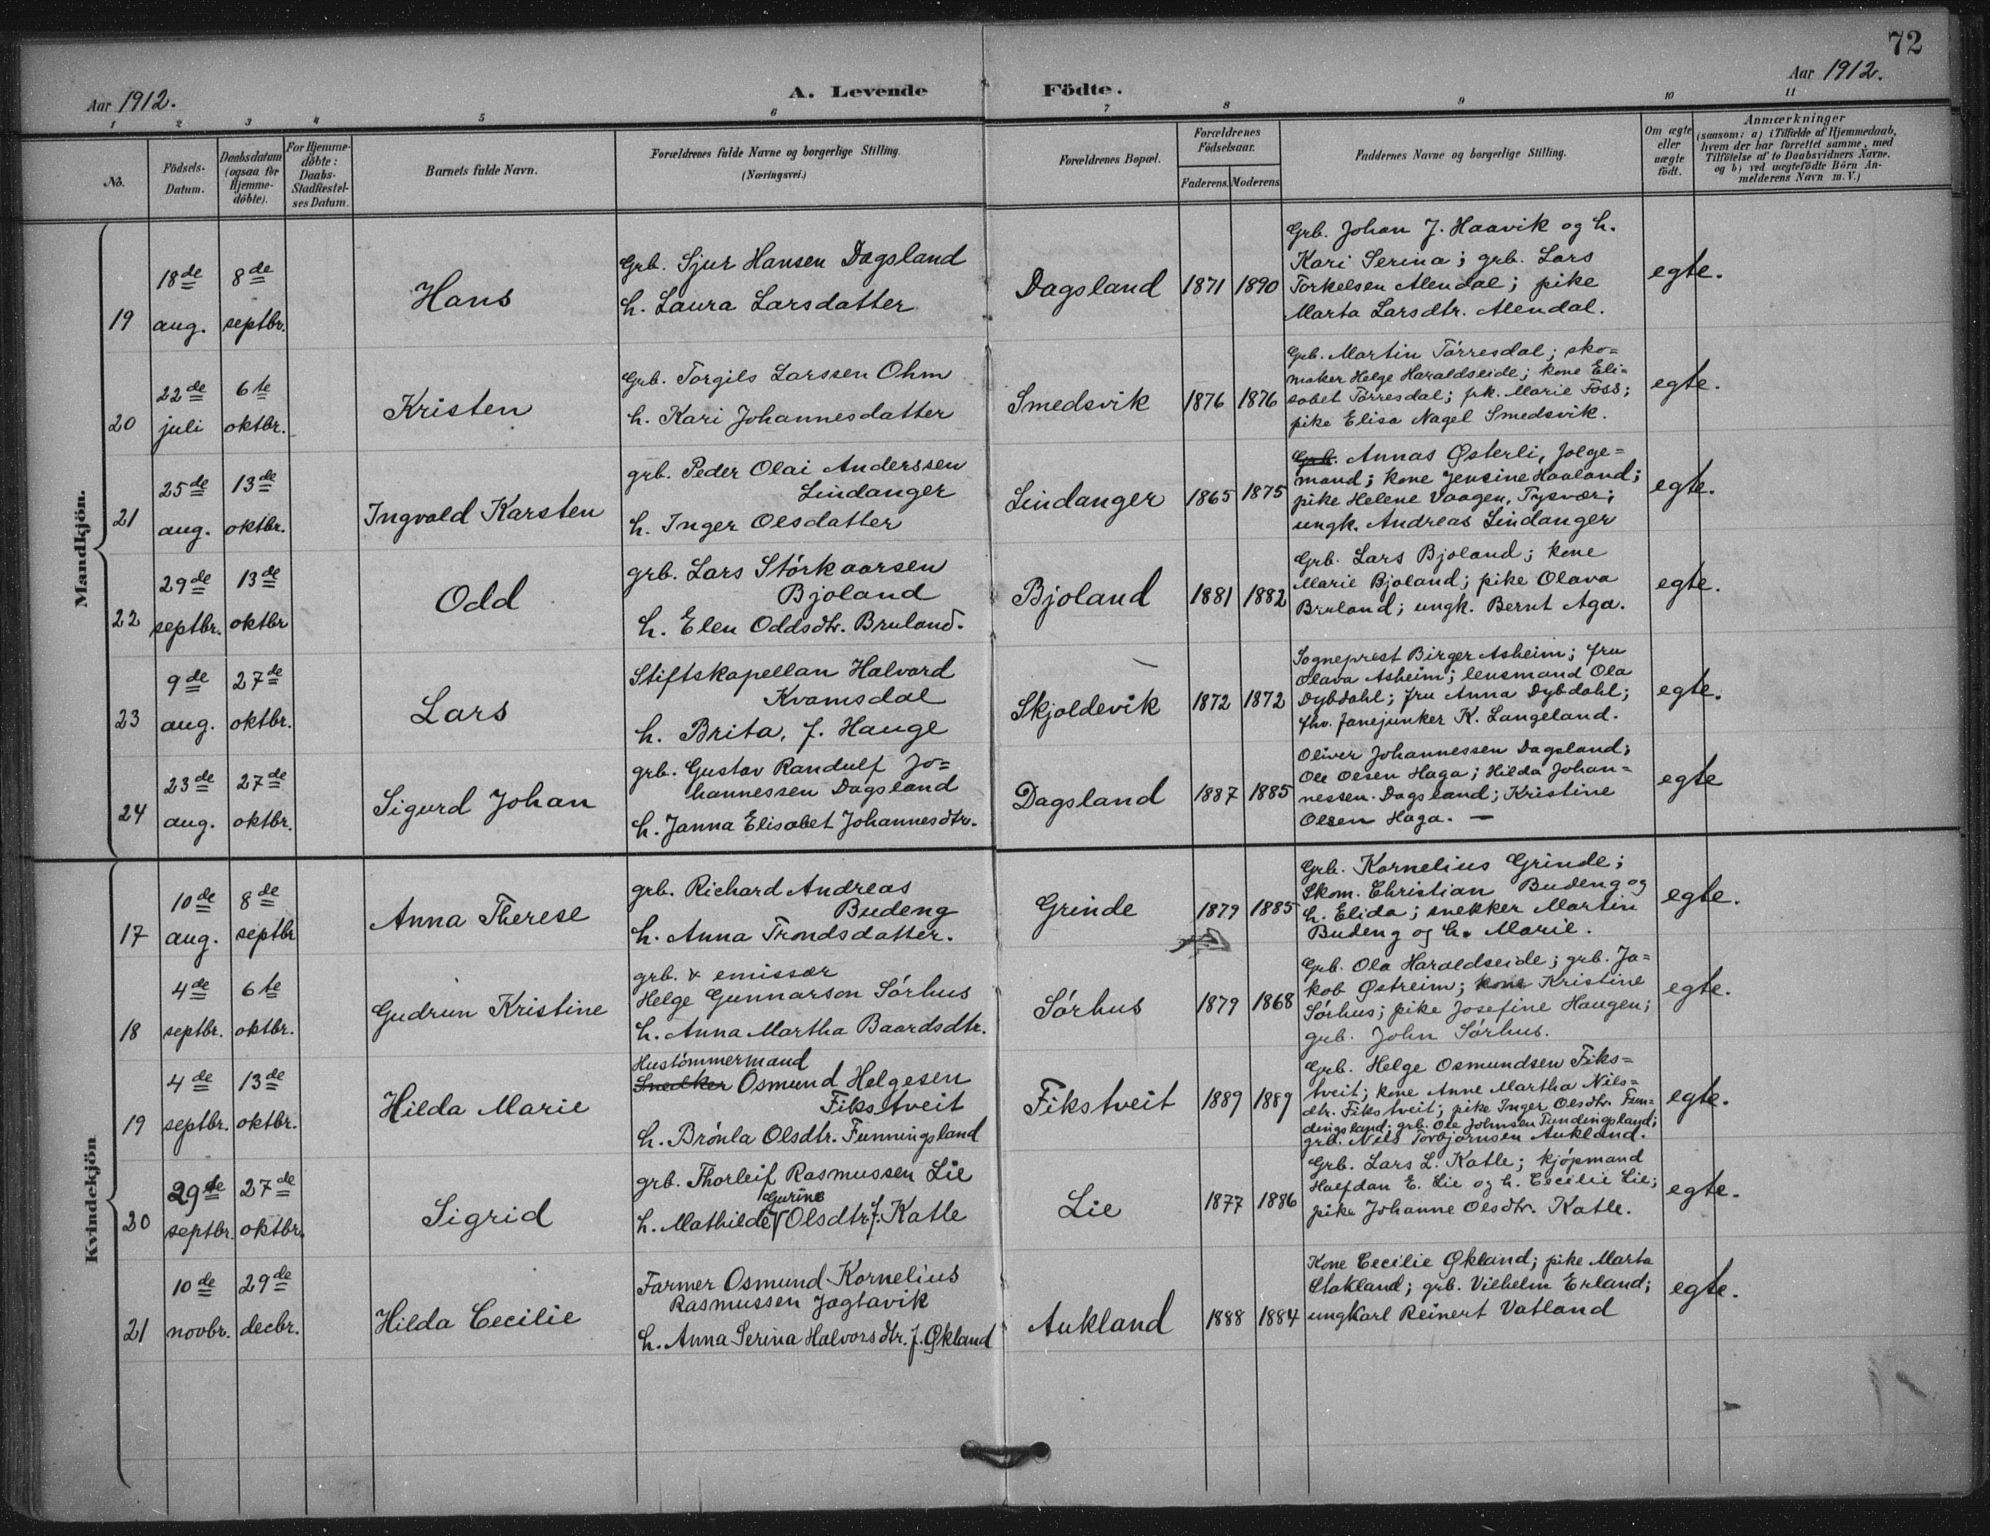 72
Aar 1912.
A. Levende Födte.
Aar 1912.
1 2 3 4 5 6 7 8 9 10 11
No.
Födsels-
Datum.
Daabsdatum
(ogsaa for
Hjemme-
döbte).
For Hjemme-
döbte:
Daabs-
Stadfæstel-
ses Datum.
Barnets fulde Navn.
Forældrenes fulde Navne og borgerlige Stilling.
(Næringsvei.)
Forældrenes Bopæl.
Forældrenes
Födselsaar.
Faderens. Moderens
Faddernes Navne og borgerlige Stilling.
Om ægte
eller
uægte
födt.
Anmærkninger
(saasom: a) i Tilfælde af Hjemmedaab,
hvem der har forrettet samme, med
Tilföielse af to Daabsvidners Navne.
og b) ved uægtefödte Börn An-
melderens Navn m. V.)
Mandkjön.
19
18de
aug.
8de
septbr.
Hans
Grb. Sjur Hansen Dagsland
h. Laura Larsdatter
Dagsland
1871 1890
Grb. Johan J. Haavik og h.
Kari Serina; grb. Lars
Torkelsen Alendal; pike
Marta Larsdtr. Alendal.
egte.
20
22de
juli
6te
oktbr.
Kristen
Grb. Torgils Larssen Ohm
h. Kari Johannesdatter
Smedsvik
1876 1876
Grb. Martin Tørresdal; sko-
maker Helge Haraldseide; kone Eli-
sabet Tørresdal; frk. Marie Foss;
pike Elisa Nagel Smedsvik.
egte.
21
25de
aug.
13de
oktbr.
Ingvald Karsten
grb. Peder Olai Anderssen
Lindanger
h. Inger Olsdatter
Lindanger
1865 1875
Grb. Annas Østerli, følge-
mand; kone Jensine Haaland;
pike Helene Vaagen, Tysvær;
ungk. Andreas Lindanger
egte.
22
29de
septbr.
13de
oktbr
Odd
grb. Lars Størkaarsen
Bjoland
h. Elen Oddsdtr. Bruland.
Bjoland
1881 1882
Grb. Lars Bjoland; kone
Marie Bjoland; pike Olava
Bruland; ungk. Bernt Aga.
egte.
23
9de
aug.
27de
oktbr.
Lars
Stiftskapellan Halvard
Kvamsdal
h. Brita, f. Hauge
Skjoldevik
1872 1872
Sogneprest Birger Asheim; fru
Olava Asheim; lensmand Ola
Dybdahl; fru Anna Dybdahl;
fhv. fanejunker K. Langeland.
egte.
24
23de
aug.
27de
oktbr.
Sigurd Johan
grb. Gustav Randulf Jo-
hannessen Dagsland
h. Janna Elisabet Johannesdtr.
Dagsland
1887 1885
Oliver Johannessen Dagsland;
Ole Olsen Haga; Hilda Johan-
nessen Dagsland; Kristine
Olsen Haga. —
egte
Kvindekjön
17
10de
aug.
8de
septbr
Anna Therese
grb. Richard Andreas
Budeng
h. Anna Trondsdatter.
Grinde
1879 1885
Grb. Kornelius Grinde;
Skom. Christian Budeng og
h. Elida; snekker Martin
Budeng og h. Marie.
egte.
18
4de
septbr.
6te
oktbr.
Gudrun Kristine
grb. & emissær
Helge Gunnarson Sørhus
h. Anna Martha Baardsdtr.
Sørhus
1879 1868
Grb. Ola Haraldseide; grb. Ja-
kob Østreim; kone Kristine
Sørhus; pike Josefine Haugen;
grb. John Sørhus.
egte.
19
4de
septbr.
13de
oktbr.
Hilda Marie
Hustømmermand
Snedker Osmund Helgesen
Fikstveit
h. Brønla Olsdtr. Funningsland
Fikstveit
1889 1889
Grb. Helge Osmundsen Fiks-
tveit; kone Anne Martha Nils-
dtr. Fikstveit; pike Inger Olsdtr. Fun-
dingsland; grb. Ole Johnsen Fundingsland;
grb. Nils Torbjørnsen Aukland.
egte.
20
29de
septbr.
27de
oktbr.
Sigrid
grb. Thorleif Rasmussen Lie
Gurine
h. Mathilde Olsdtr. f. Katle
Lie
1877 1886
Grb. Lars L. Katle; kjøpmand
Halfdan E. Lie og h. Cecilie Lie;
pike Johanne Olsdtr. Katle.
egte.
21
10de
novbr.
29de
decbr.
Hilda Cecilie
Farmer Osmund Kornelius
Rasmussen Jagtavik
h. Anna Serina Halvorsdtr. f. Økland
Aukland
1888 1884
Kone Cecilie Økland; pike Marta
Stakland; grb. Vilhelm Erland;
ungkarl Reinert Vatland
egte.